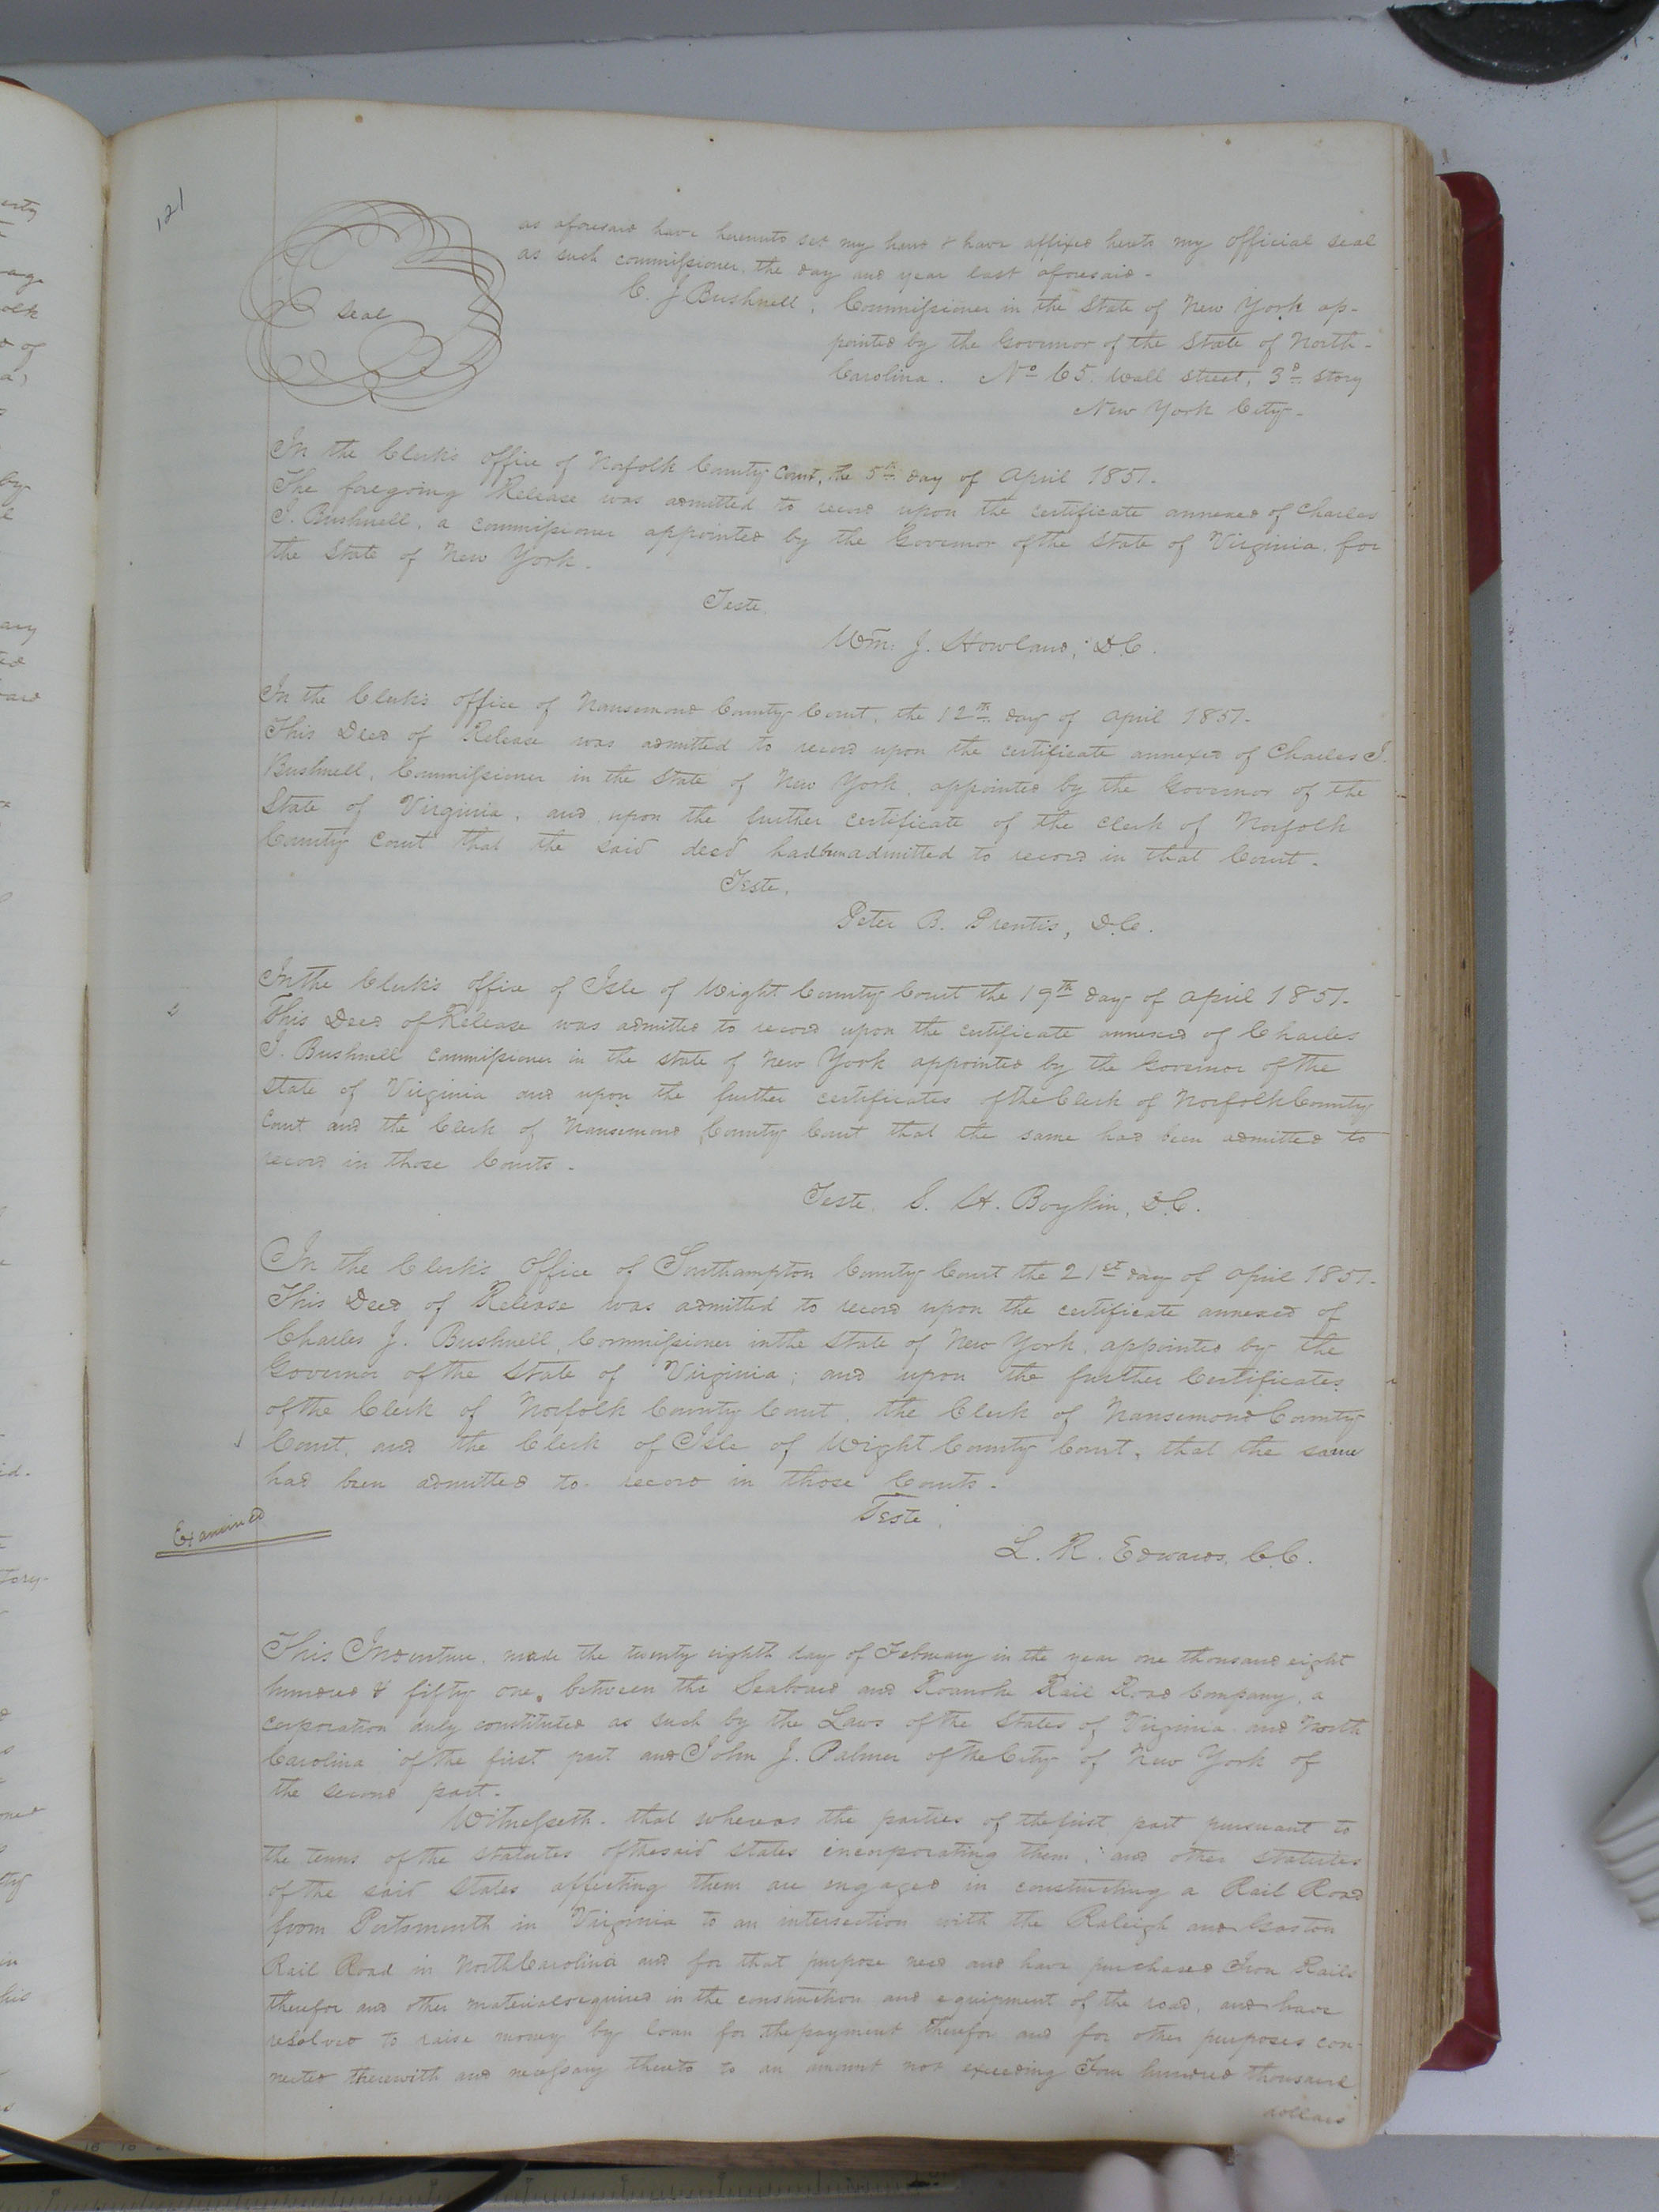 121
as aforesaid have hereunto set my hand & have affixed hereto my official seal
as such commissioner, the day and year last aforesaid -
Seal
C. J Bushnell, Commissioner in the State of New York ap-
pointed by the Governor of the State of North-
Carolina. No 65. Wall Street, 3d story
New York City-
In the Clerk's office of Norfolk County Court, the 5th day of April 1851.
The foregoing Release was admitted to record upon the certificate annexed of Charles
J. Bushnell, a commissioner appointed by the Governor of the State of Virginia for
the State of New York.
Teste,
Wm. J. Howland, D.C.
In the Clerk's office of Nansemond County Court, the 12th day of April 1851.
This Deed of Release was admitted to record upon the certificate annexed of Charles J.
Bushnell, Commissioner in the State of New York, appointed by the Governor of the
State of Virginia, and upon the further certificate of the Clerk of Norfolk
County Court that the said deed had been admitted to record in that Court.
Teste,
Peter B. Prentis, D.C.
In the Clerk's office of Isle of Wight County Court the 19th day of April 1851.
This Deed of Release was admitted to record upon the certificate annexed of Charles
J. Bushnell commissioner in the state of New York appointed by the Governor of the
state of Virginia and upon the further certificates of the Clerk of Norfolk County
Court and the Clerk of Nansemond County Court that the same had been admitted to
record in those Courts.
Teste, S. H. Boykin, D.C.
In the Clerk's Office of Southampton County Court the 21st day of April 1851.
This Deed of Release was admitted to record upon the certificate annexed of
Charles J. Bushnell, Commissioner in the State of New York, appointed by the
Governor of the State of Virginia; and upon the further Certificates
of the Clerk of Norfolk County Court, the Clerk of Nansemond County
Court, and the Clerk of Isle of Wight County Court, that the same
had been admitted to record in those Courts.
Teste,
Examined
L. R. Edwards, C.C.
This Indenture, made the twenty eighth day of February in the year one thousand eight
hundred & fifty one, between the Seaboard and Roanoke Rail Road Company, a
corporation duly constituted as such by the Laws of the States of Virginia and North
Carolina of the first part and John J. Palmer of the City of New York of
the second part.
Witnesseth. that whereas the parties of the first part pursuant to
the terms of the statutes of the said states incorporating them, and other statutes
of the said States affecting them are engaged in constructing a Rail Road
from Portsmouth in Virginia to an intersection with the Raleigh and Gaston
Rail Road in North Carolina and for that purpose need and have purchased Iron Rails
therefor and other materials required in the construction and equipment of the road, and have
resolved to raise money by loan for the payment therefor and for other purposes con-
nected therewith and necessary thereto to an amount not exceeding Four hundred thousand
dollars